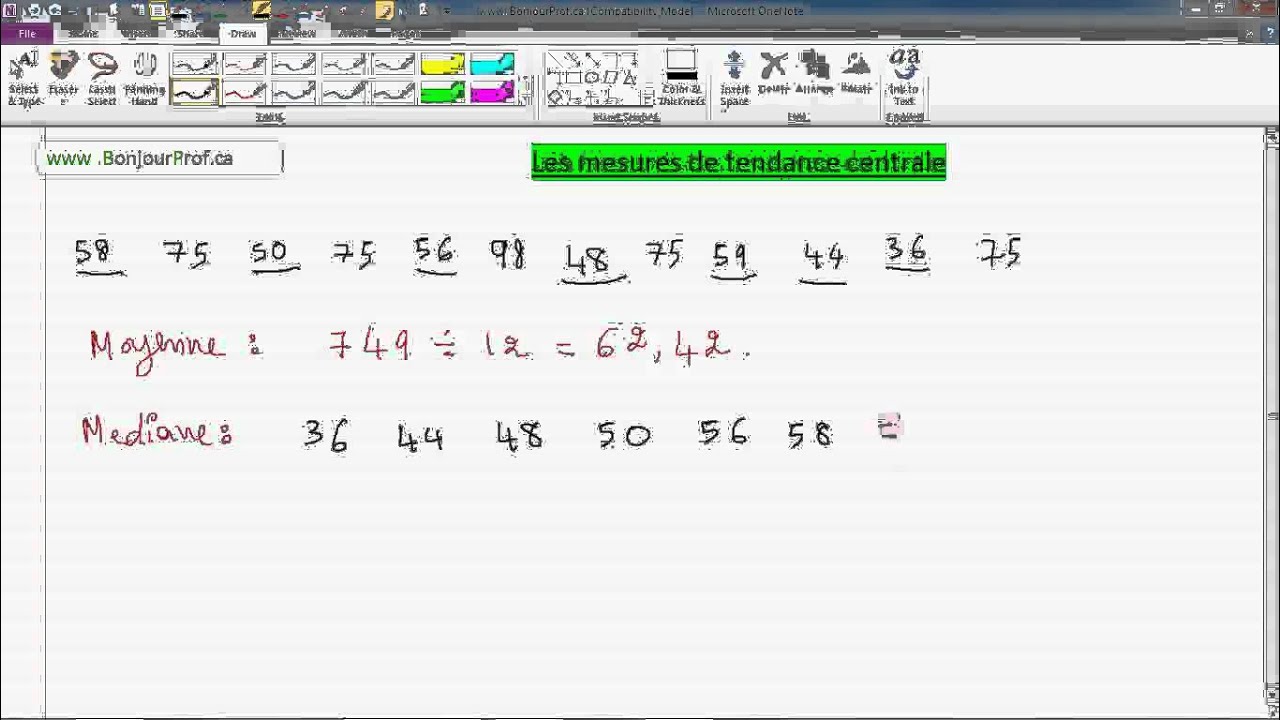 www.BonjourProf.ca [Compatibility Mode] - Microsoft OneNote
File Draw
Select & Type Eraser Lasso Select Panning Hand Color & Thickness Insert Space Delete Arrange Rotate Ink to Text
Tools Insert Shapes Edit
www .BonjourProf.ca
Les mesures de tendance centrale
58 75 50 75 56 98 48 75 59 44 36 75
Moyenne : 749 ÷ 12 = 62,42.
Mediane : 36 44 48 50 56 58